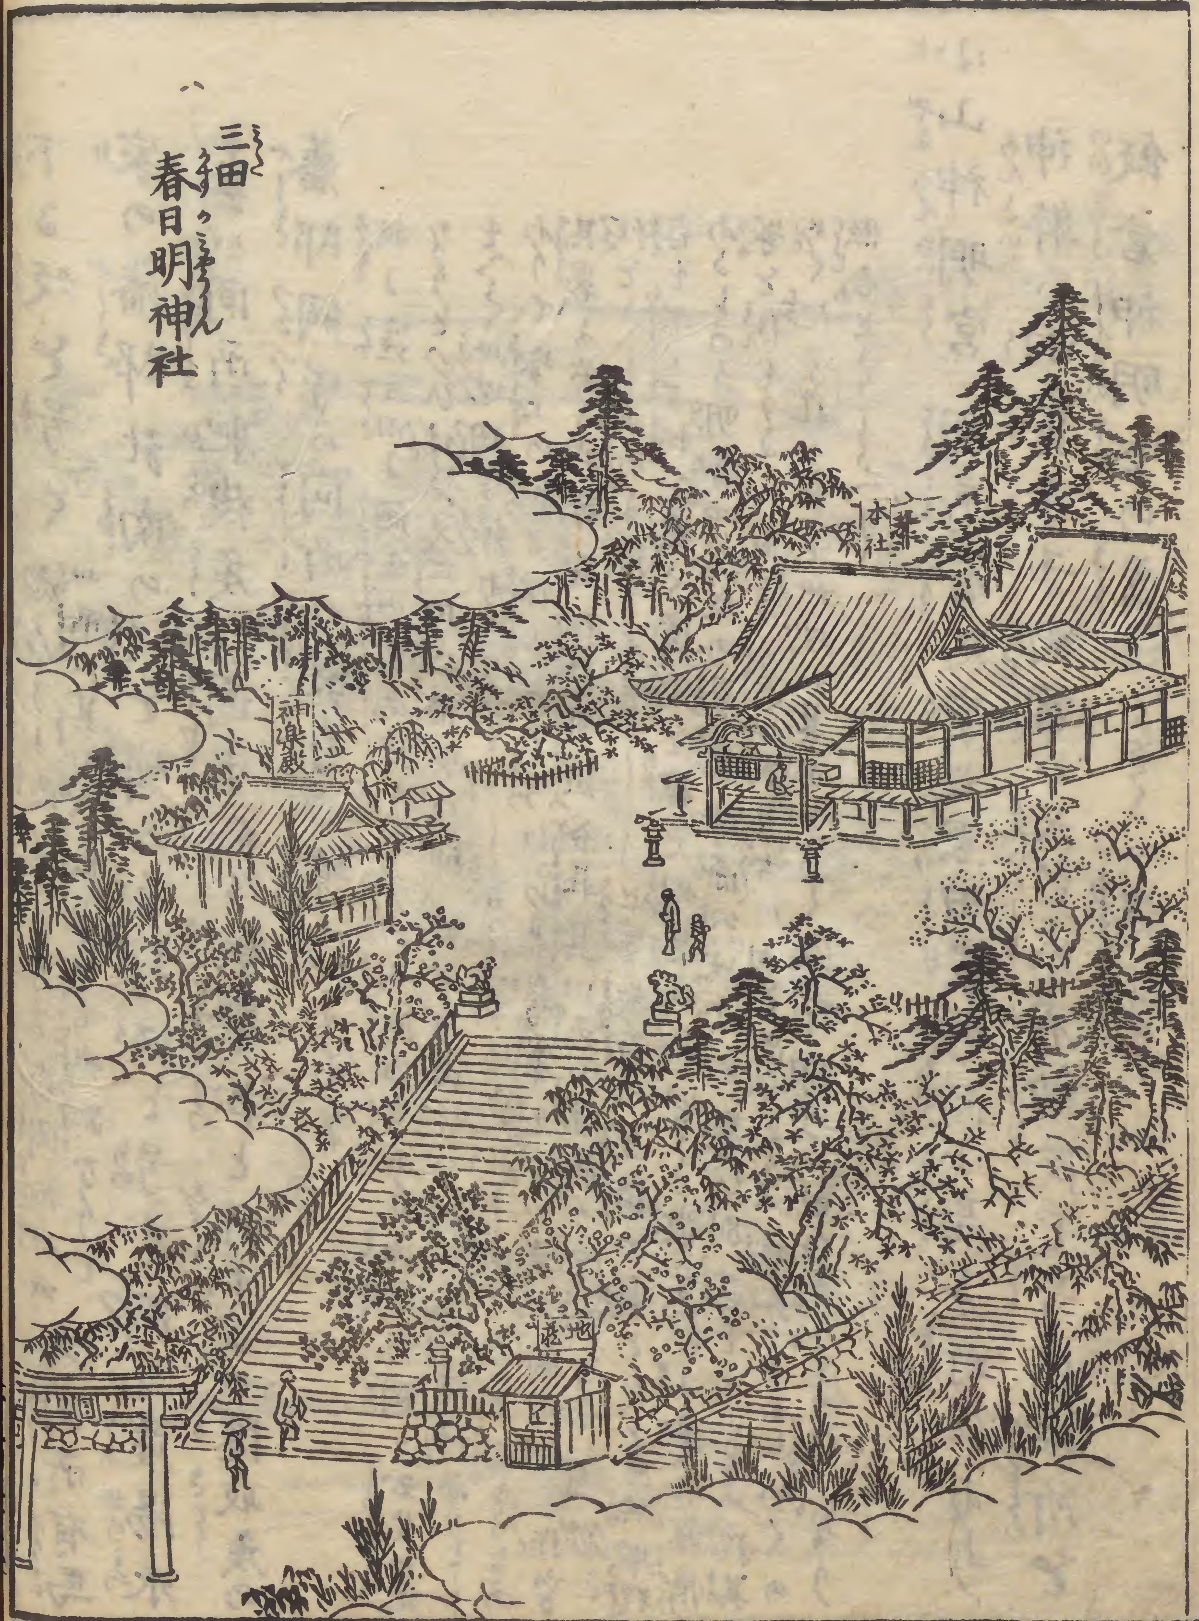 三田
春日明神社
本社
神楽殿
地蔵